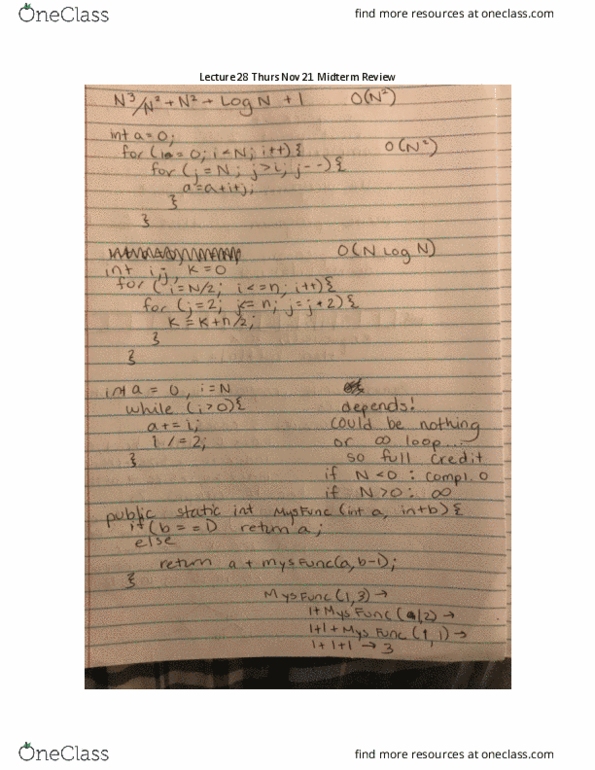 OneClass
find more resources at oneclass.com
Lecture 28 Thurs Nov 21 Midterm Review
N³/N² + N² + Log N + 1 O(N²)
int a=0;
for (i= 0; i<N; i++){ O(N²)
for (j=N; j>i; j--){
a=a+i+j;
}
}
O(N Log N)
int i,j, k=0
for (i=N/2; i<=n; i++){
for (j=2; j<= n; j=j*2){
k = k+n/2;
}
}
int a = 0, i=N
while (i>0){ depends!
a+= i; could be nothing
i /= 2; or ∞ loop....
} so full credit
if N<0: compl. 0
if N>0: ∞
public static int MysFunc (int a, int b){
if(b==1) return a;
else
return a + mysFunc(a,b-1);
}
MysFunc(1,3) →
1+MysFunc(1,2) →
1+1+Mys Func (1,1) →
1+1+1 → 3
OneClass
find more resources at oneclass.com